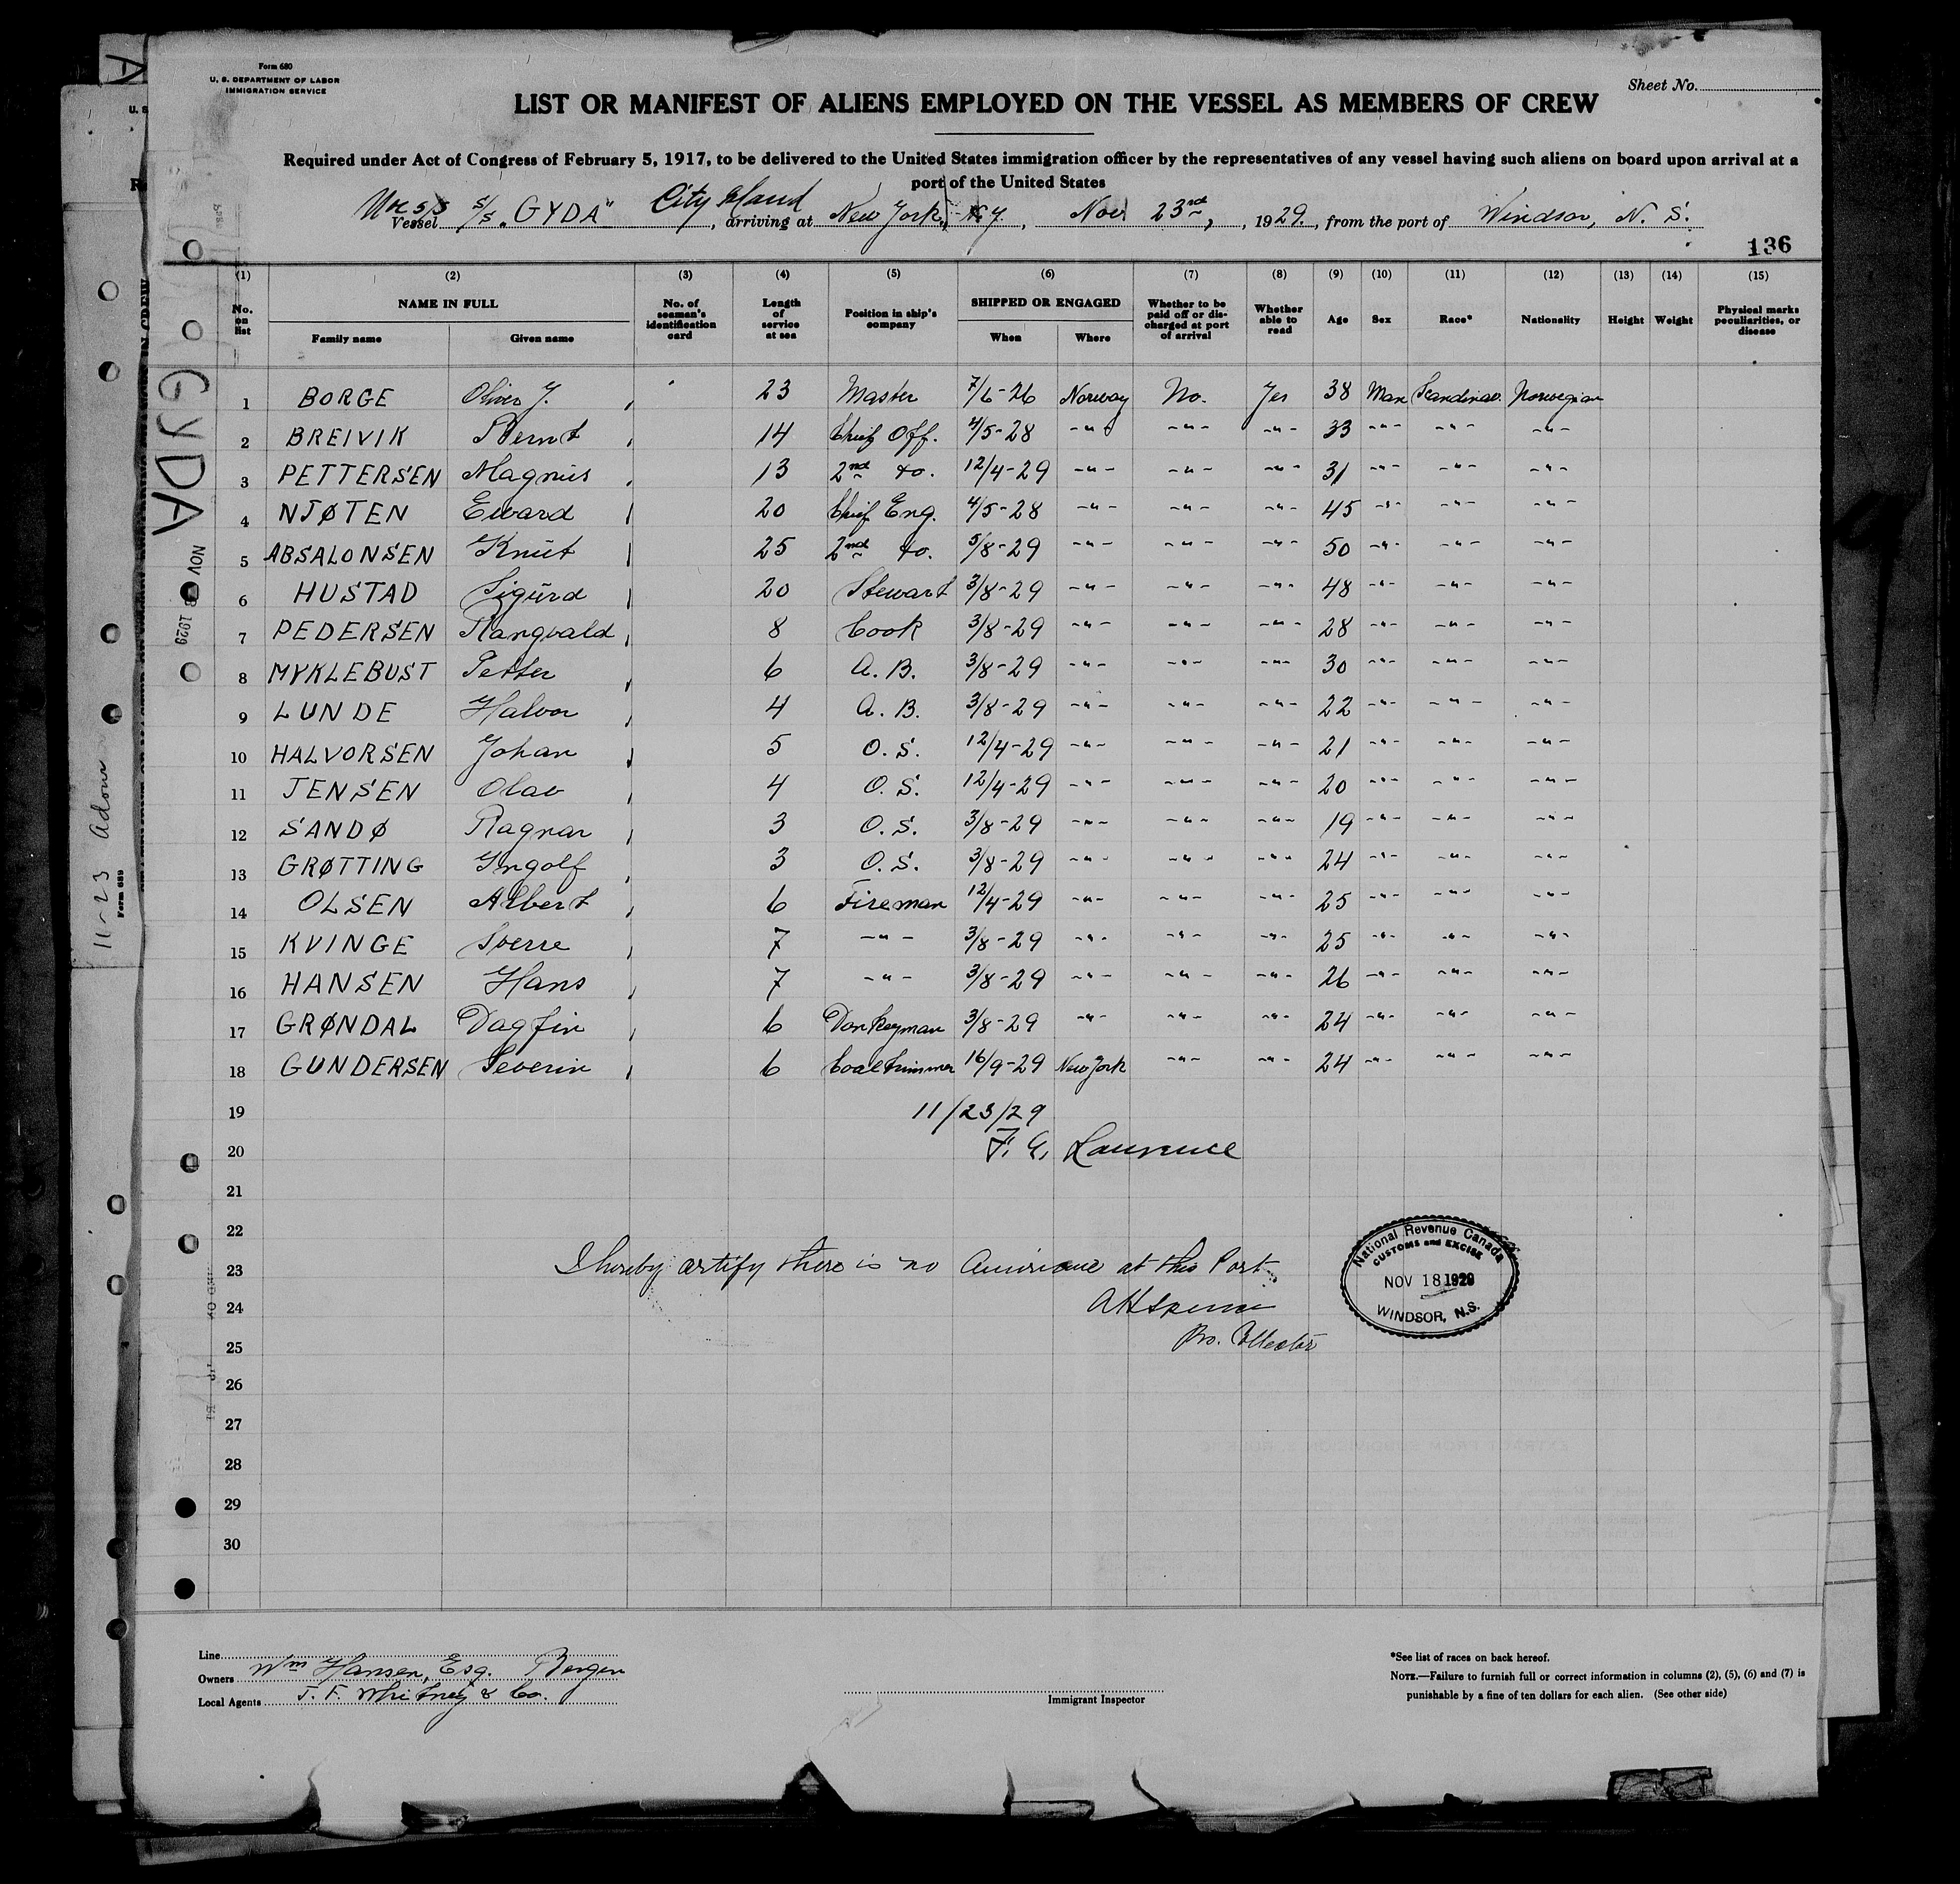 Form 680
U. S. DEPARTMENT OF LABOR
IMMIGRATION SERVICE
Sheet No.
LIST OR MANIFEST OF ALIENS EMPLOYED ON THE VESSEL AS MEMBERS OF CREW
Required under Act of Congress of February 5, 1917, to be delivered to the United States immigration officer by the representatives of any vessel having such aliens on board upon arrival at a
port of the United States
City Island
Vessel S/S „GYDA" , arriving at New York, N.Y. , Nov 23rd, , 1929. , from the port of Windsor, N. S.
136
(1) (2) (3) (4) (5) (6) (7) (8) (9) (10) (11) (12) (13) (14) (15)
No. on list NAME IN FULL Family name Given name No. of seaman's identification card Length of service at sea Position in ship's company SHIPPED OR ENGAGED When Where Whether to be paid off or discharged at port of arrival Whether able to read Age Sex Race* Nationality Height Weight Physical marks peculiarities, or disease
1 BORGE Oliver J. 23 Master 7/6-26 Norway No. Yes 38 Man Scandinav. Norwegian
2 BREIVIK Bernt 14 Chief Off. 4/5-28 -"- -"- -"- 33 -"- -"- -"-
3 PETTERSEN Magnus 13 2nd do. 12/4-29 -"- -"- -"- 31 -"- -"-
4 NJØTEN Edvard 20 Chief Eng. 4/5-28 -"- -"- -"- 45 -"- -"- -"-
5 ABSALONSEN Knut 25 2nd do. 5/8-29 -"- -"- -"- 50 -"- -"- -"-
6 HUSTAD Sigurd 20 Stewart 3/8-29 -"- -"- -"- 48 -"- -"- -"-
7 PEDERSEN Rangvald 8 Cook 3/8-29 -"- -"- -"- 28 -"- -"- -"-
8 MYKLEBUST Petter 6 A. B. 3/8-29 -"- -"- -"- 30 -"- -"- -"-
9 LUNDE Halvor 4 A. B. 3/8-29 -"- -"- -"- 22 -"- -"- -"-
10 HALVORSEN Johan 5 O. S. 12/4-29 -"- -"- -"- 21 -"- -"- -"-
11 JENSEN Olav 4 O. S. 12/4-29 -"- -"- -"- 20 -"- -"- -"-
12 SANDØ Ragnar 3 O. S. 3/8-29 -"- -"- -"- 19 -"- -"- -"-
13 GRØTTING Ingolf 3 O. S. 3/8-29 -"- -"- -"- 24 -"- -"- -"-
14 OLSEN Albert 6 Fireman 12/4-29 -"- -"- -"- 25 -"- -"- -"-
15 KVINGE Sverre 7 -"- 3/8-29 -"- -"- -"- 25 -"- -"- -"-
16 HANSEN Hans 7 -"- 3/8-29 -"- -"- -"- 26 -"- -"- -"-
17 GRØNDAL Dagfin 6 Donkeyman 3/8-29 -"- -"- -"- 24 -"- -"- -"-
18 GUNDERSEN Severin 6 Coaltrimmer 16/9-29 New York -"- -"- 24 -"- -"- -"-
19 11/23/29
20 F. G. Laurence
21
22
23 I hereby certify there is no American at this Port
24
25 Pro. Collector
26
27
28
29
30
National Revenue Canada
CUSTOMS and EXCISE
NOV 18 1929
WINDSOR, N.S.
GYDA
NOV 1929
11-23
Form 689
Line
Owners Wm Hansen, Esq. Bergen
Local Agents J. F. Whitney & Co.
Immigrant Inspector
*See list of races on back hereof.
NOTE.—Failure to furnish full or correct information in columns (2), (5), (6) and (7) is
punishable by a fine of ten dollars for each alien. (See other side)